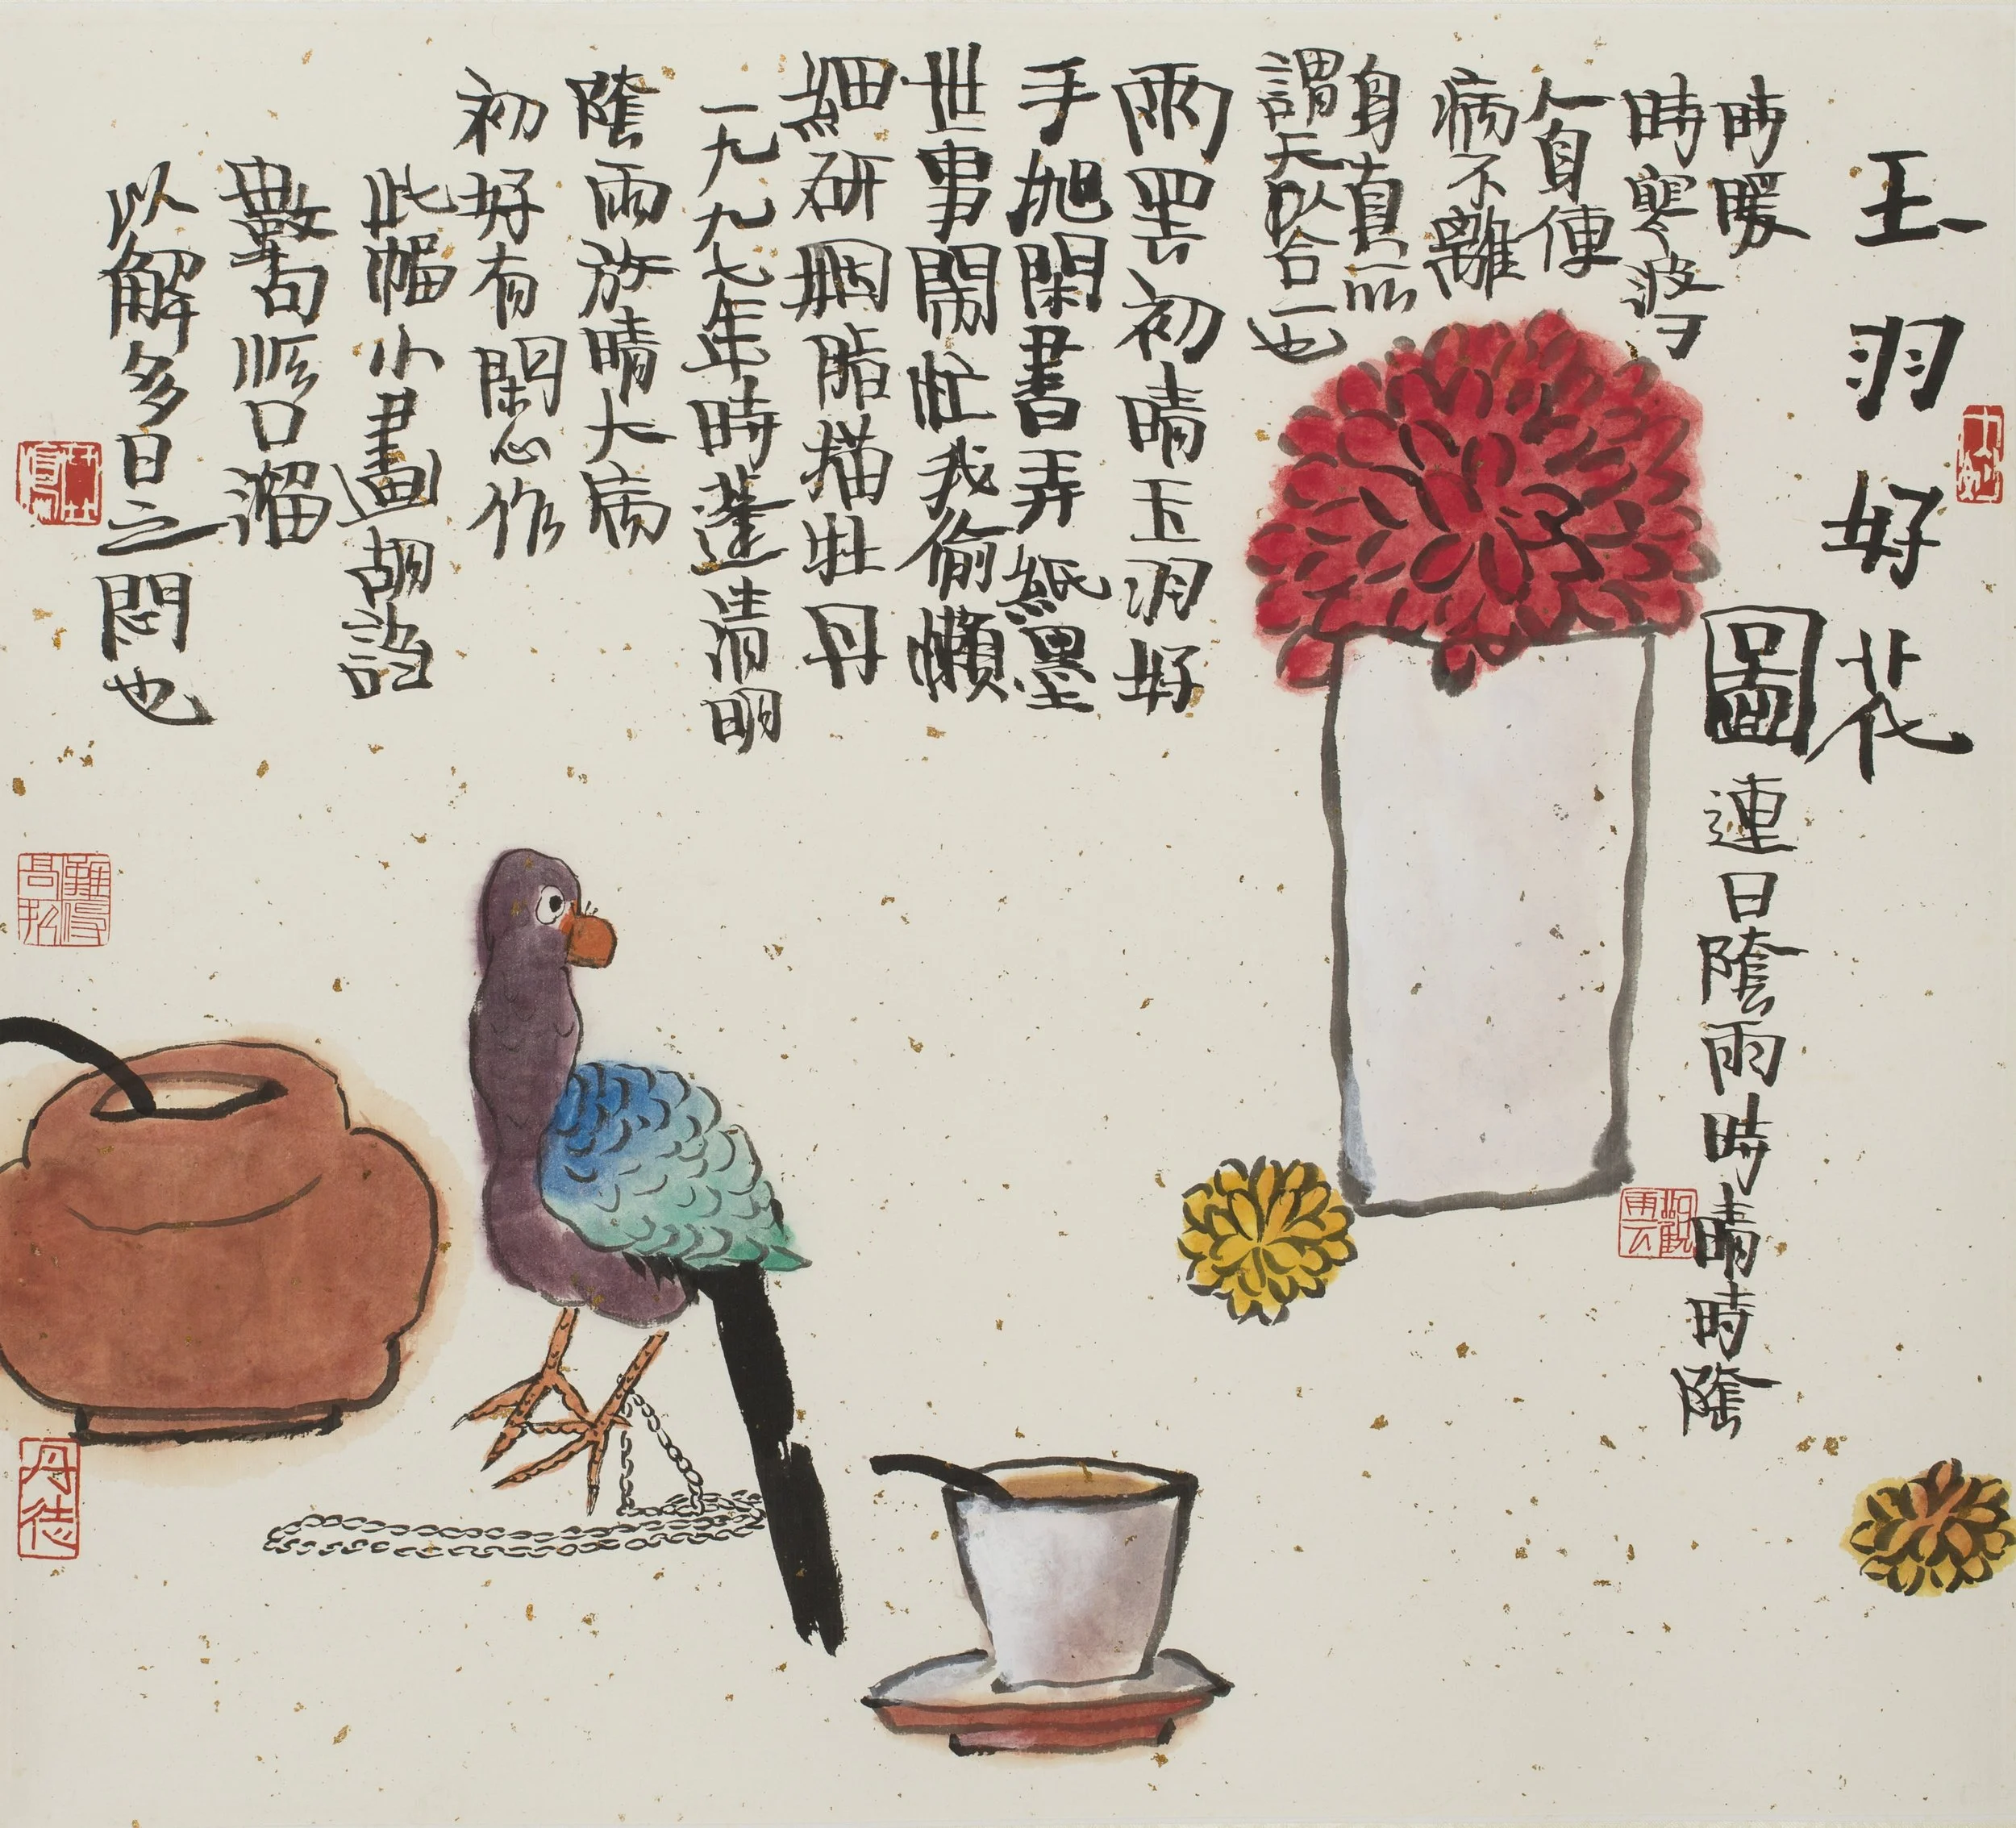 玉羽好花
圖
連日陰雨時晴時陰
時暖
時寒
人自便
病不離
身真所
謂天合一也
雨罷初晴玉羽好
手拋閑書弄紙墨
世事鬧忙我偷懶
細研胭脂描牡丹
一九九七年時逢清明
陰雨放晴大病
初好有閑心作
此幅小畫胡謅
數句順口溜
以解多日之悶也
丹徒